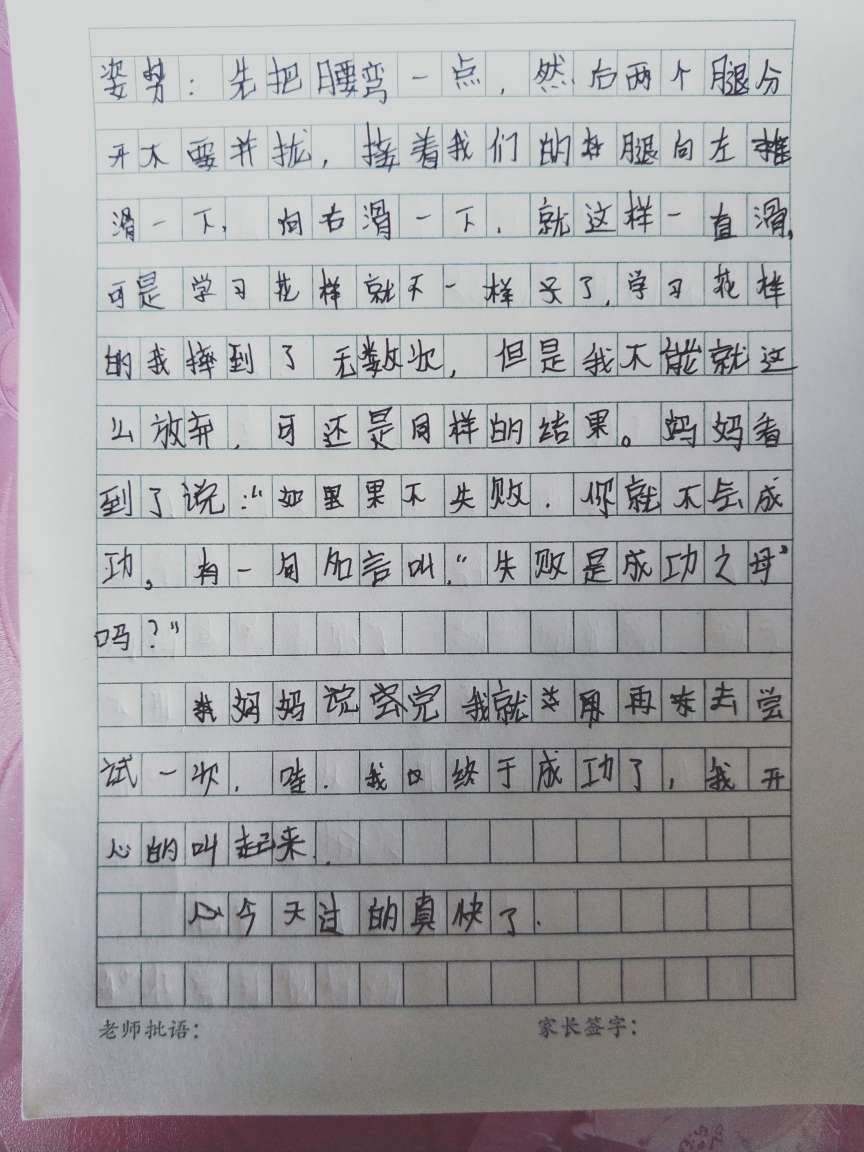 姿势：先把腰弯一点，然后两个腿分
开不要并拢，接着我们的腿向左
滑一下，向右滑一下，就这样一直滑，
可是学习花样就不一样了，学习花样
的我摔到了无数次，但是我不能就这
么放弃，可还是同样的结果。妈妈看
到了说：“如果不失败，你就不会成
功。有一句名言叫，“失败是成功之母”
吗？”
我妈妈说完我就再去尝
试一次，哇，我终于成功了，我开
心的叫起来，
今天过的真快了，
老师批语： 家长签字：